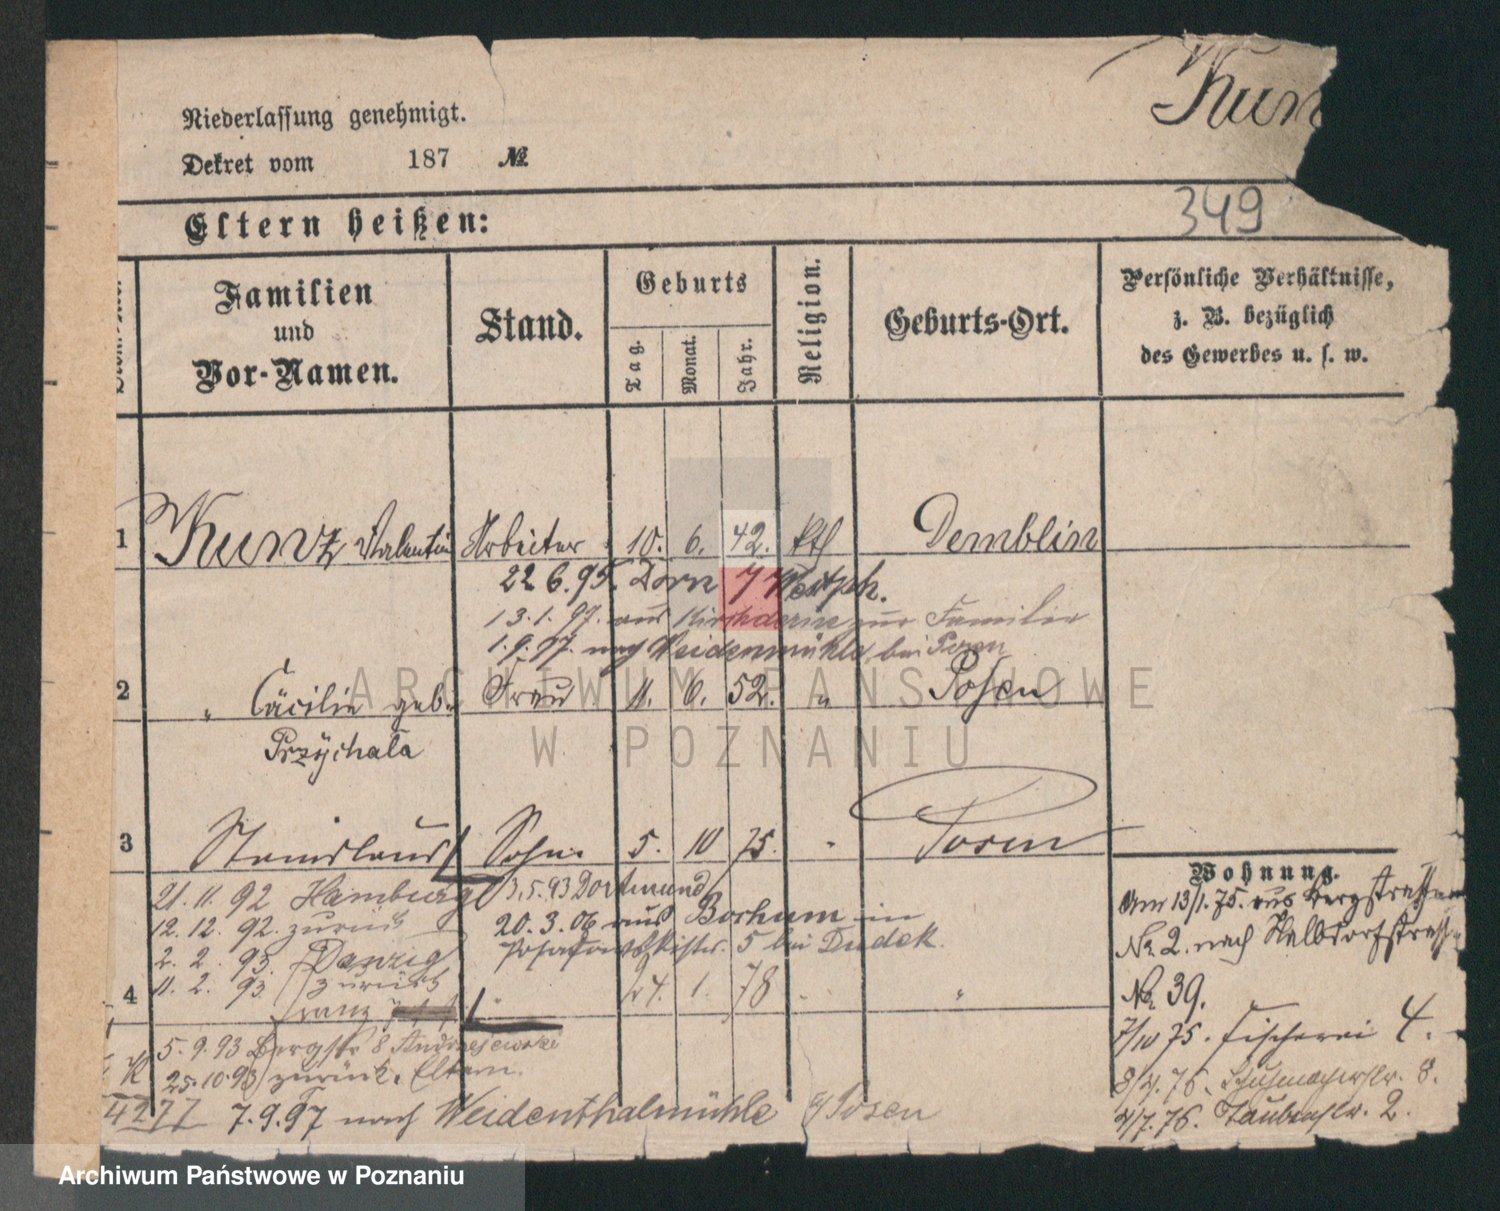 Kun
Niederlassung genehmigt.
Dekret vom 187 №
349
Eltern heißen:
Familien und Vor-Namen.
Stand.
Geburts
Tag.
Monat.
Jahr.
Religion.
Geburts-Ort.
Persönliche Verhältnisse,
z. B. bezüglich
des Gewerbes u. s. w.
1 Kunz Valentin Arbeiter 10. 6. 42. kth Demblin
22.6.95. Dorn Westph.
13.1.97. aus Kirchderne zur Familie
1.9.97. nach Weidenmühle bei Posen
2 " Cäcilie geb. Frau 11. 6. 52. " Posen
Przychala
3 Stanislaus Sohn 5. 10 75. " Posen
21.11.92 Hamburg 3.5.93 Dortmund
12.12.92. zurück 20.3.06 aus Bochum in
2.2.93. Danzig 5 bei Dudek.
11.2.93. zurück
4 Franz " 24. 1. 78 " "
5.9.93 Bergstr 8 Andrzejewski
25.10.93 zurück. Eltern.
4277 7.9.97 nach Weidenthalmühle b/Posen
Wohnung.
Am 13/1.75. aus Bergstrasse
No 2. nach Halbdorfstrasse
No. 39.
7/10 75. Fischerei 4.
8/4.76. Schuhmacherstr. 8.
4/7.76. Taubenstr. 2.
ARCHIWUM PAŃSTWOWE
W POZNANIU
Archiwum Państwowe w Poznaniu